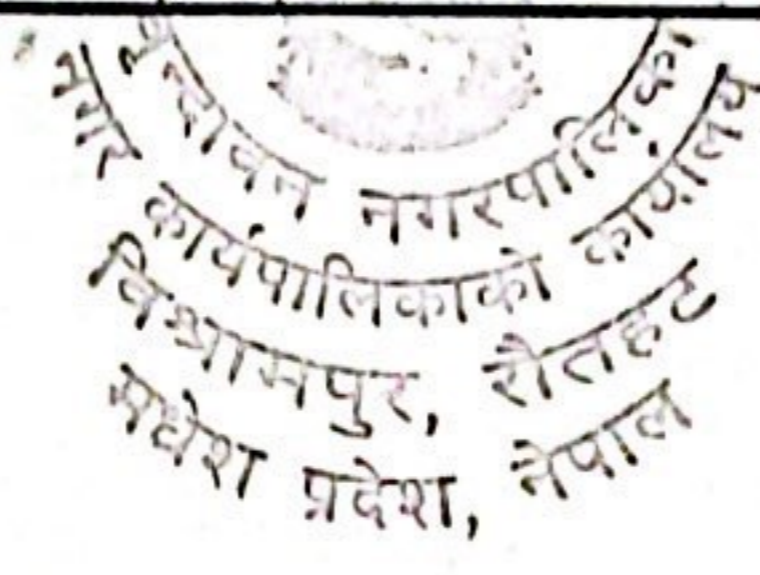 वृन्दावन नगरपालिका
नगर कार्यपालिकाको कार्यालय
विश्रामपुर, रौतहट
मधेश प्रदेश, नेपाल